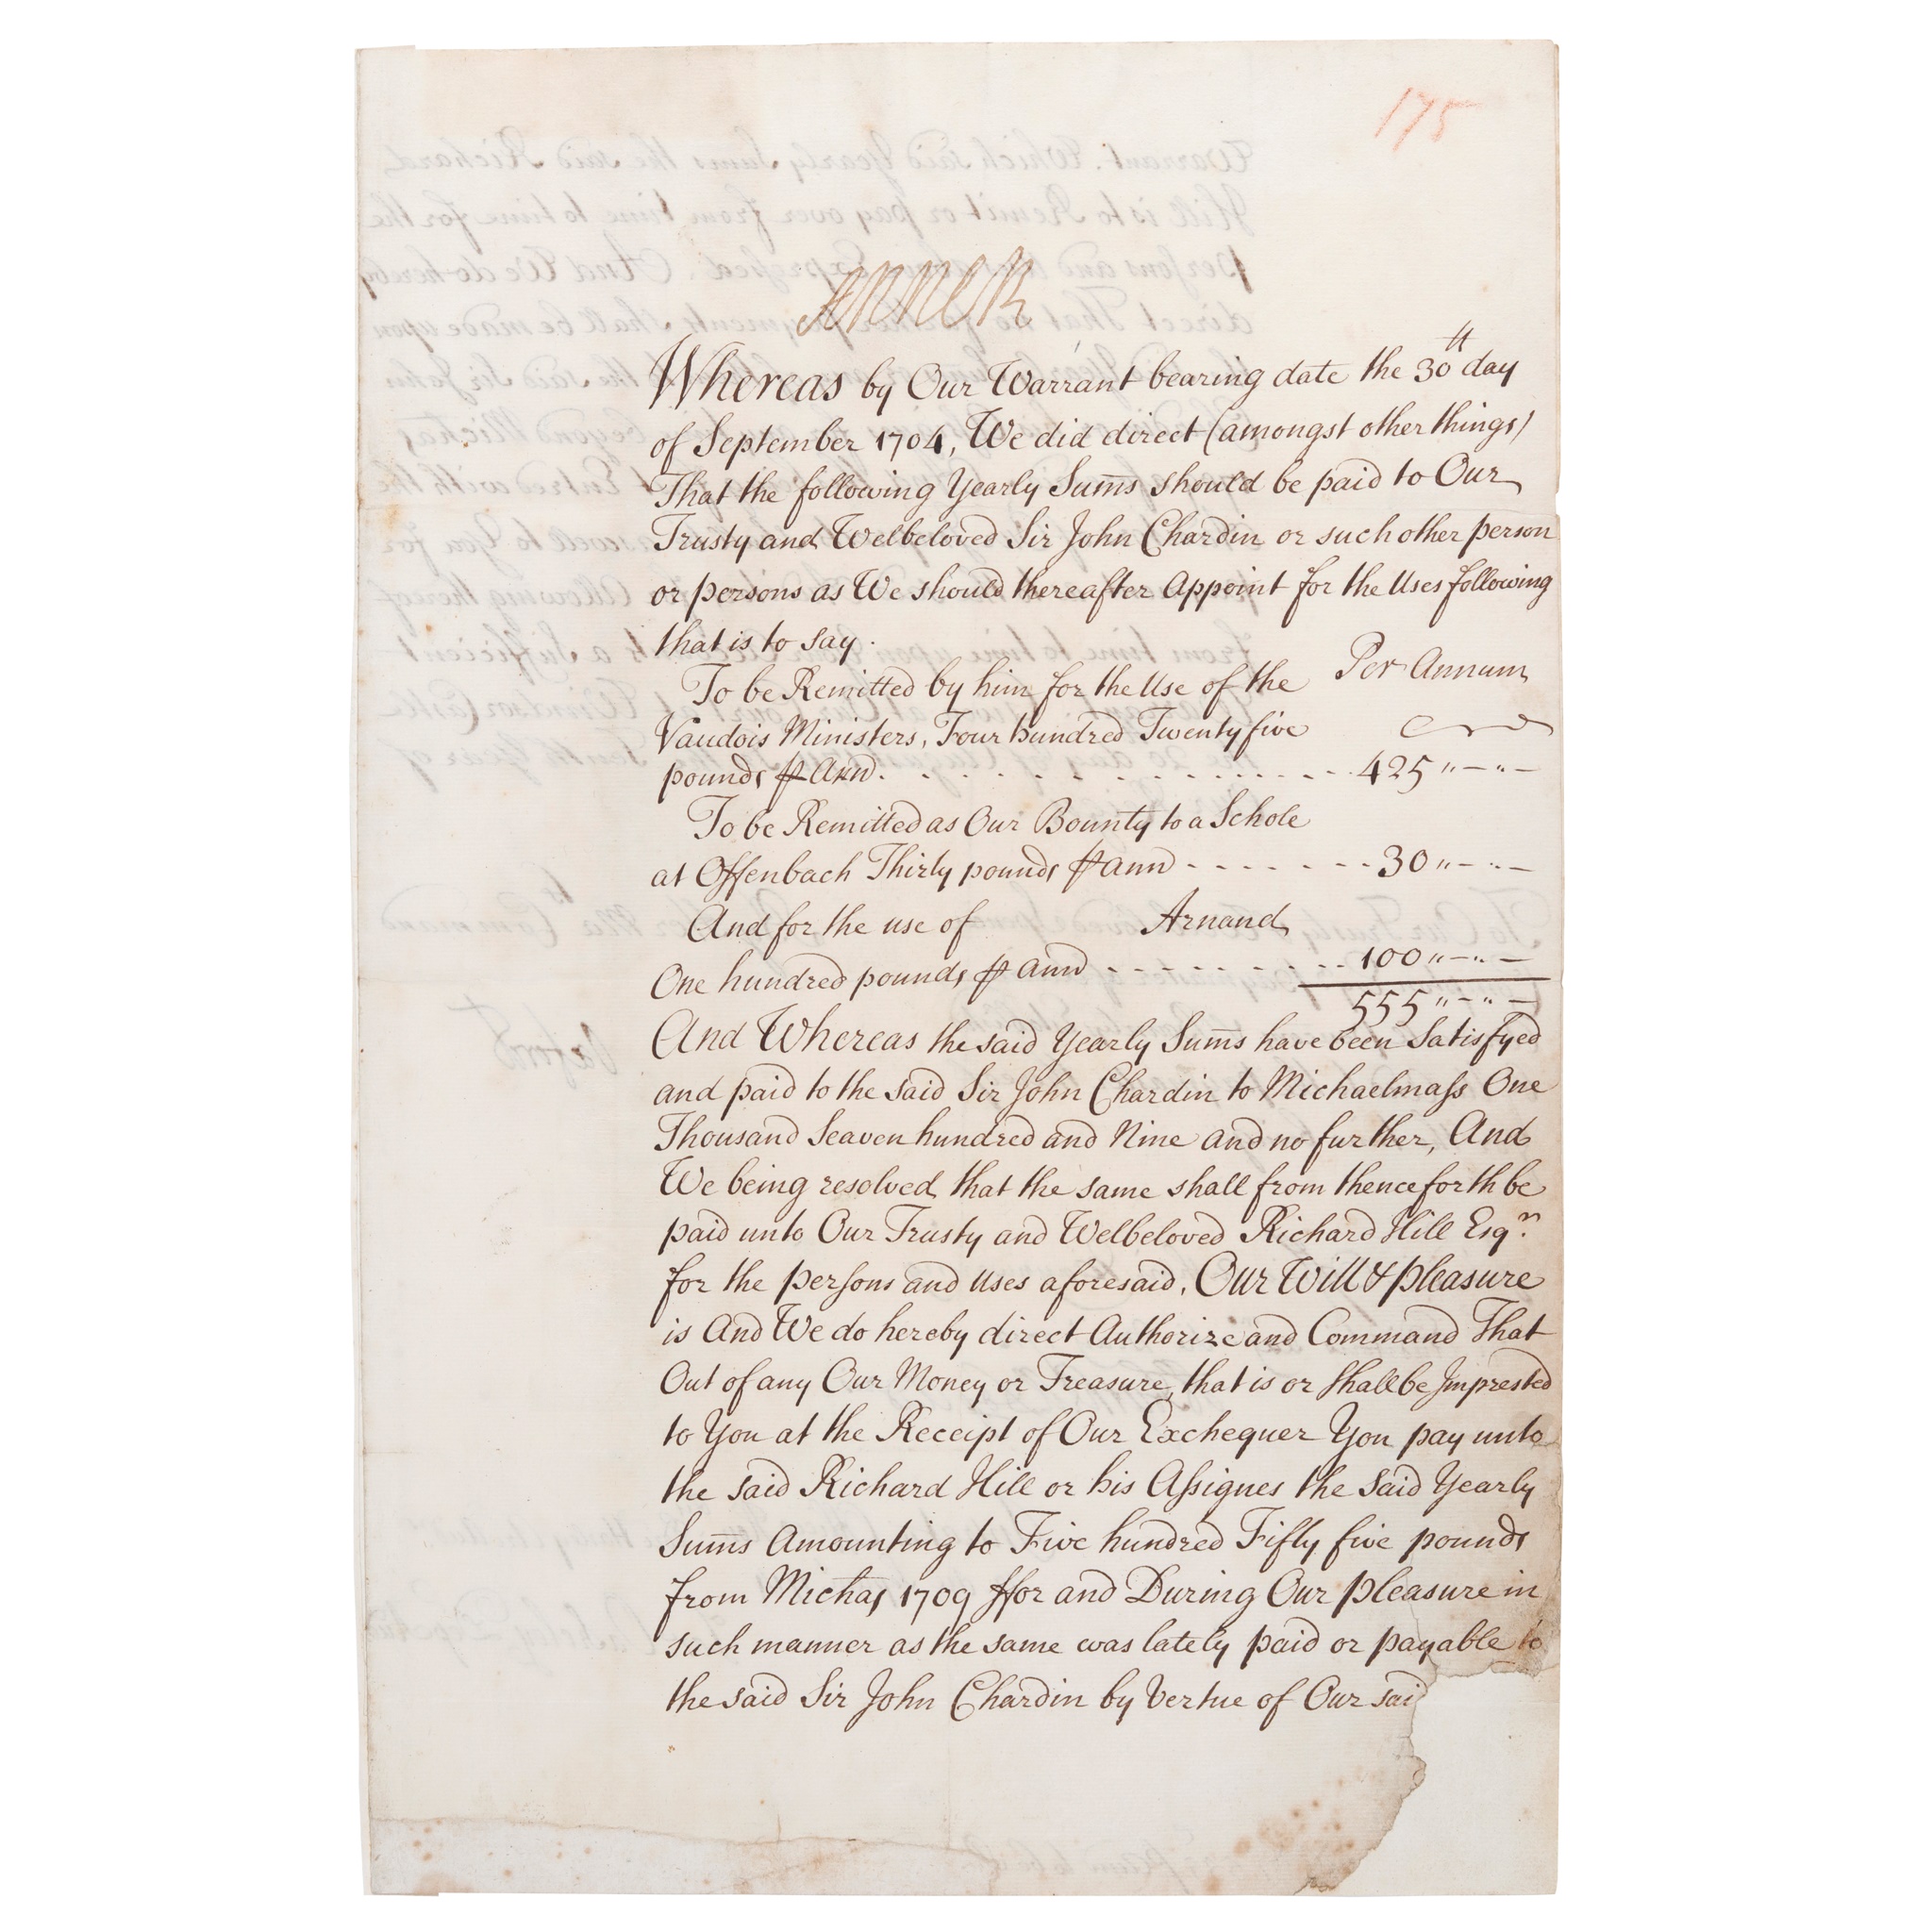 175
Anne R
Whereas by Our Warrant bearing date the 30th day
of September 1704, We did direct (amongst other things)
That the following Yearly Sum̄s should be paid to Our
Trusty and Welbeloved Sir John Chardin or such other person
or persons as We should thereafter Appoint for the Uses following
that is to say.
Per Annum
To be Remitted by him for the Use of the
Vaudois Ministers, Four hundred Twenty five
pounds ⅌ Ann. . . . . . . . . . . . . . . 425 "—"—
To be Remitted as Our Bounty to a Schole
at Offenbach Thirty pounds ⅌ ann - - - - - - - 30 "—"—
And for the use of Arnand
One hundred pounds ⅌ ann - - - - - - - - - 100 "—"—
555 "—"—
And Whereas the said Yearly Sum̄s have been Satisfyed
and paid to the said Sir John Chardin to Michaelmass One
Thousand Seaven hundred and Nine and no further, And
We being resolved that the same shall from thenceforth be
paid unto Our Trusty and Welbeloved Richard Hill Esqr.
for the persons and uses aforesaid. Our Will & pleasure
is And We do hereby direct Authorize and Command That
Out of any Our Money or Treasure, that is or shall be Imprested
to You at the Receipt of Our Exchequer You pay unto
the said Richard Hill or his Assignes the said Yearly
Sum̄s Amounting to Five hundred Fifty five pounds
from Michas 1709 ffor and During Our pleasure in
such manner as the same was lately paid or payable to
the said Sir John Chardin by Vertue of Our said